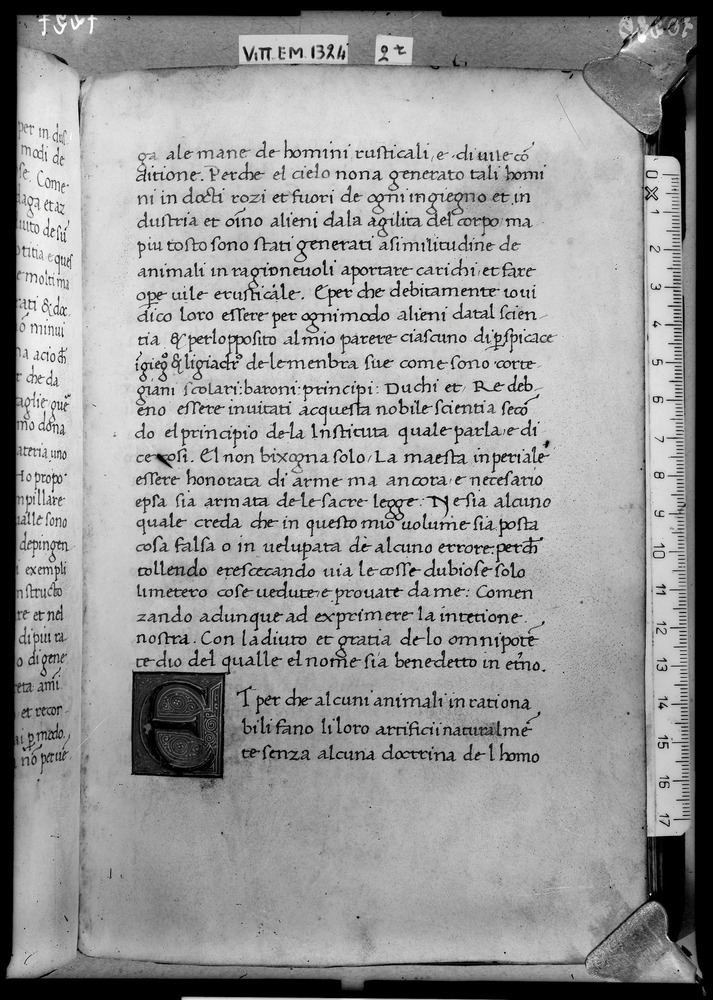 Vitt. E.M. 1324 2r
per in dus
modi de
se. Come
laga et az
iuto de su
titia e ques
e molti ma
rati & doc
minui
na acio ch̄
r che da
taglie que
mo dona
ateria uno
to propo
npillare
ualle sono
depingen
i exempli
nstructo
re et nel
di piu ra
o di gene
eta ami
et recor
ai p̱ modo,
nō perue
ga ale mane de homini rusticali, e di uile cō
ditione. Perche el cielo non a generato tali homi
ni in docti rozi et fuori de ogni ingiegno et in
dustria et oīno alieni dala agilita del corpo ma
piu tosto sono stati generati a similitudine de
animali in ragioneuoli aportare carichi et fare
ope uile e rusticale. E per che debitamente io ui
dico loro essere per ogni modo alieni da tal scien-
tia & per lopposito al mio parere ciascuno di p̱spicace
īgieg̊ & ligiadr̊ de le menbra sue come sono corte-
giani scolari: baroni: principi: Duchi et Re deb-
eno essere inuitati a cquesta nobile scientia secō
do el principio de la Instituta quale parla e di
ce cosi. El non bixogna solo La maesta inperiale
essere honorata di arme ma ancora e necesario
epsa sia armata de le sacre legge. Ne sia alcuno
quale creda che in questo mio uolume sia posta
cosa falsa o in uelupata de alcuno errore: perch̄
tollendo e rescecando uia le cosse dubiose solo
li metero cose uedute e prouate da me: Comen
zando adunque ad exprimere la intetione
nostra. Con ladiuto et gratia de lo omnipotē
te dio del qualle el nome sia benedetto in et̄no.
ET per che alcuni animali in rationa
bili fano li loro artificii naturalmē
te senza alcuna doctrina de l homo
0 1 2 3 4 5 6 7 8 9 10 11 12 13 14 15 16 17